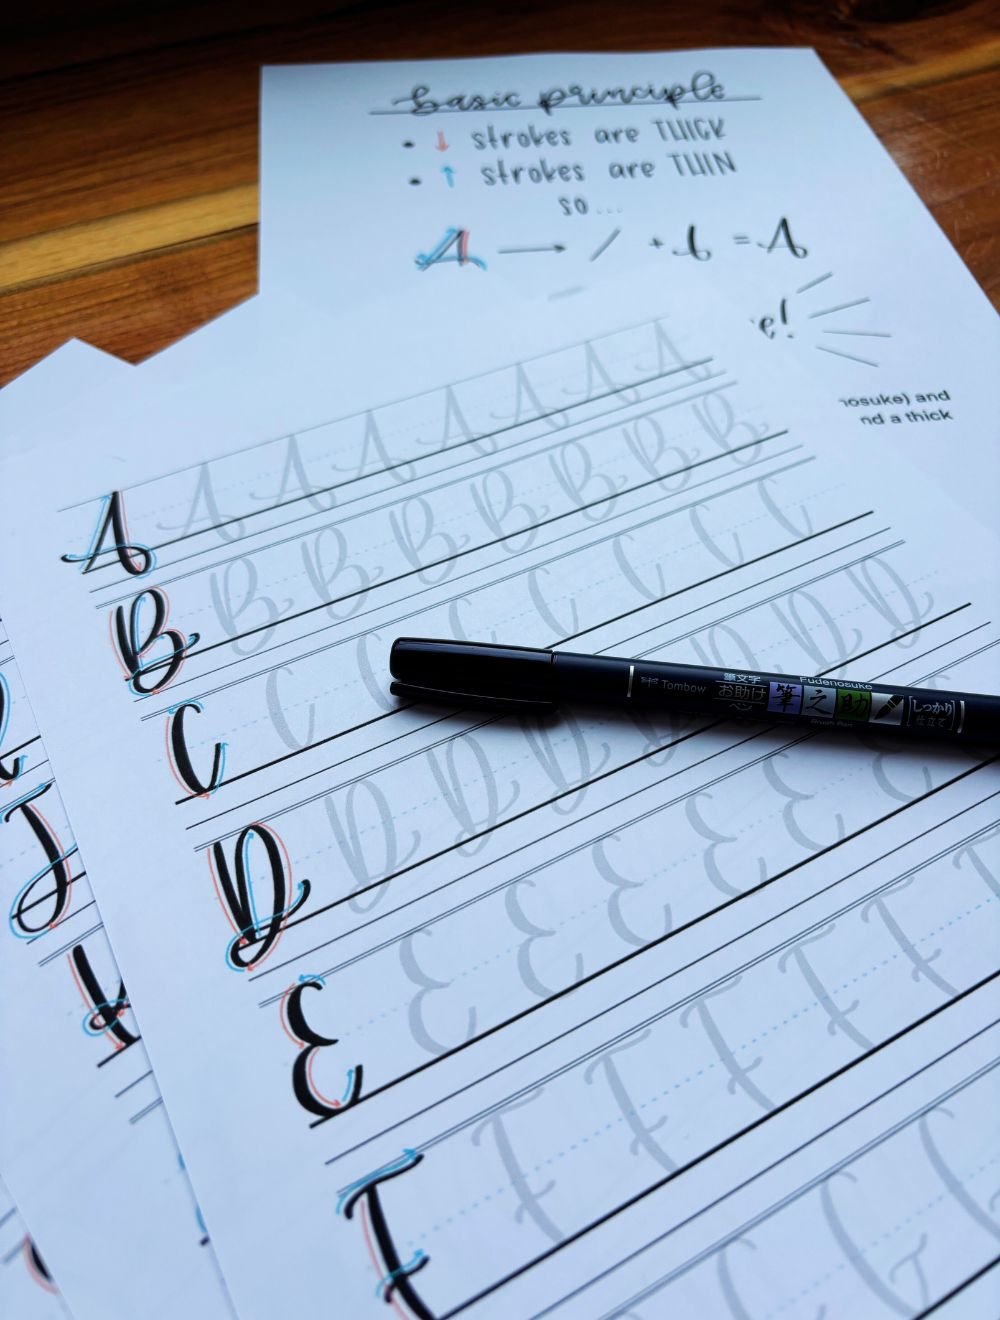 basic principle
• ↓ strokes are THICK
• ↑ strokes are THIN
so...
A → / + = A
e!
nosuke) and
nd a thick
A A A A A A A
B B B B B B B
C C C C C C C
D D D D D D D
E E E E E E
F F F F F F
G G G
J
Tombow 筆文字 お助け ペン Fudenosuke 筆之助 Brush Pen しっかり 仕立て